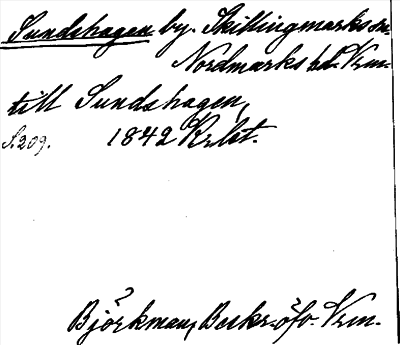 Sundshagen by. Skillingmarks sn.
Nordmarks hd. Vrm.
till Sundshagen,
S. 209. 1842 Krbt.
Björkman, Beskr. öfv. Vrm.